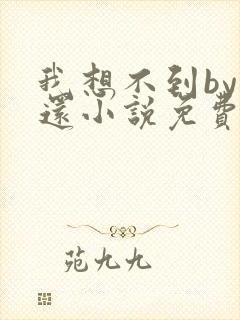 我想不到by
還小說免費
苑九九